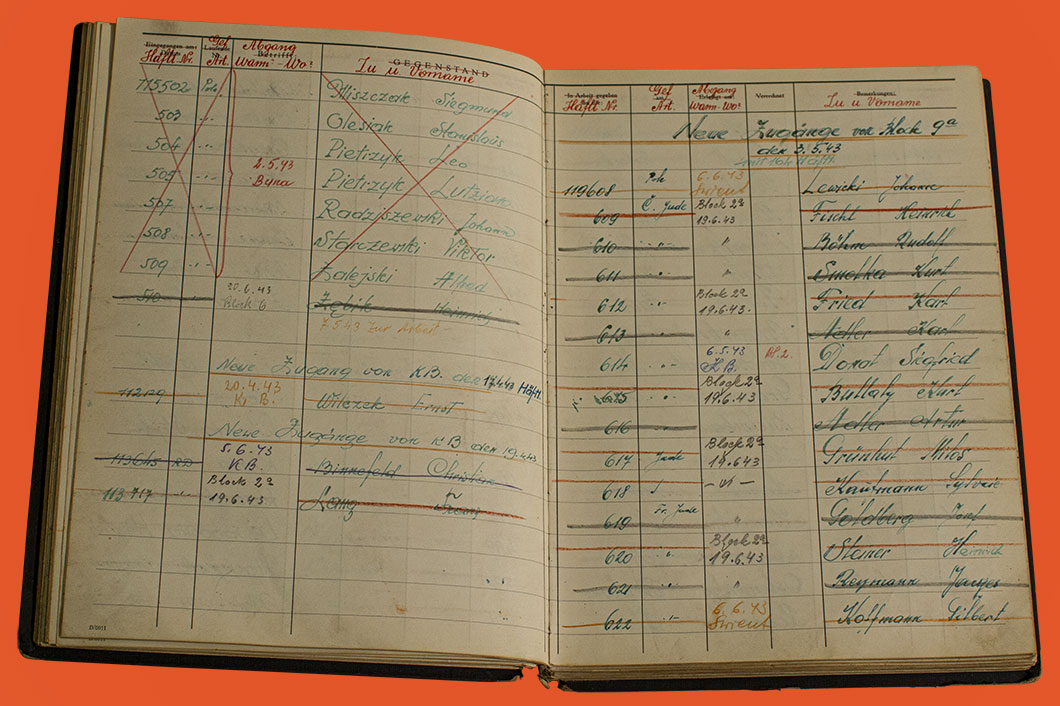 Häftl. Nr. Gef. Art. Abgang Wann - Wo? GEGENSTAND Zu u. Vorname
115502 Miszczak Siegmund
503 " Olesiak Stanislaus
504 " Pietrzyk Leo
505 " 2.5.43 Pietrzyk
Buna
507 " Radziszewski Johann
508 " Starczewski Viktor
509 " Zalejski Alfred
510 20.6.43 Heinrich
Block 6
7.5.43 zur Arbeit
Neue Zugang von KB. den 17.4.43 Häftl.
20.4.43
112129 K. B. Wilczek Ernst
Neue Zugänge von KB den 19.4.43
5.6.43
113645 RD K.B. Binnefeld Christian
Block 2a
113717 " 19.6.43 Franz
D/0011
In Arbeit gegeben Verrechnet Bemerkungen
Häftl Nr. Gef. Art. Abgang Wann-Wo? Zu u Vorname
Neue Zugänge von Block 9a
den 3.5.43
6.6.43
119608 Lewicki Johann
609 Jude Block 2a Fischl Heinrich
19.6.43
610 " " Böhm Rudolf
611 " " Smetka Kurt
612 " Block 2a Fried Karl
19.6.43.
613 " " Adler Karl
614 " 6.5.43 Bl. 2. Donat Siegfried
K.B.
615 " Block 2a Bullaty Kurt
19.6.43
616 " Adler Artur
617 Jude Block 2a Grünhut Milos
19.6.43
618 Kaufmann Sylvain
619 Fr. Jude " Goldberg Josef
620 " Block 2a Steiner Heinrich
19.6.43
621 " " Reymann
622 " 6.6.43 Koffmann Gilbert